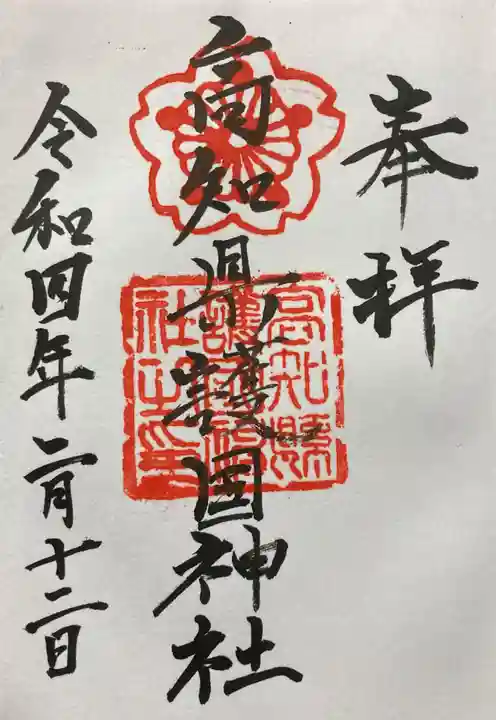 奉拝
高知県護国神社
高知縣護國神社之印
令和四年二月十二日